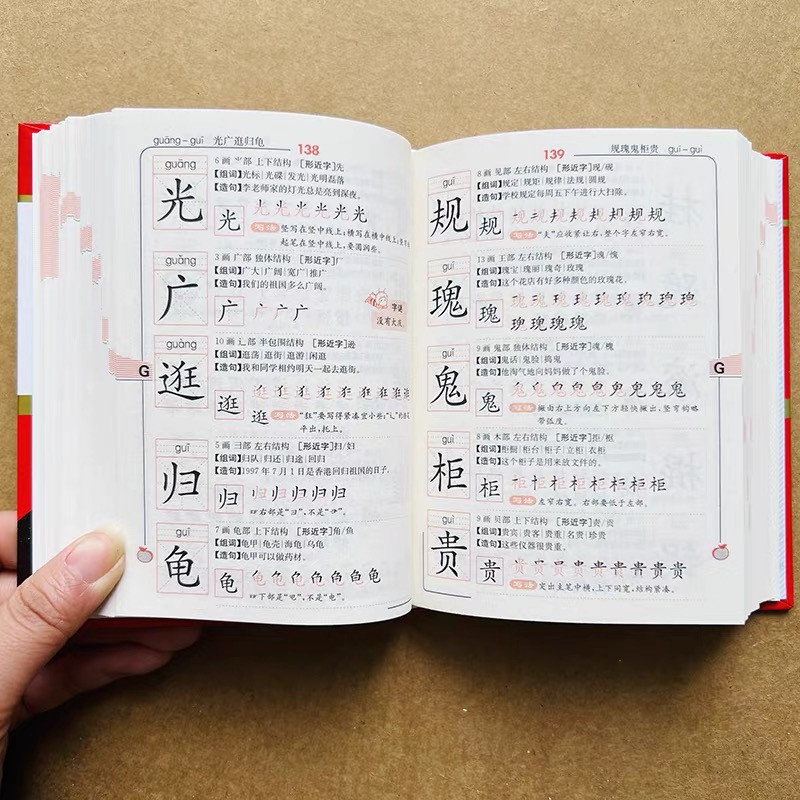 guāng-guī 光广逛归龟 138
guāng
光
6画 ⺌部 上下结构 [形近字]先
【组词】光标|光碟|发光|光明磊落
【造句】李老师家的灯光总是亮到深夜。
光
竖写在竖中线上；横写在横中线上；
起笔在竖中线上，要圆润些。
guǎng
广
3画 广部 独体结构 [形近字]厂
【组词】广大|广阔|宽广|推广
【造句】我们的祖国多么广阔。
广 广广广
字谜
没有大床。
guàng
逛
10画 辶部 半包围结构 [形近字]逊
【组词】逛荡|逛街|逛游|闲逛
【造句】我和同学相约明天一起去逛街。
逛
逛 写法 “狂”要写得紧凑宽小些；“辶”的
平出，托上。
G
guī
归
5画 彐部 左右结构 [形近字]扫/妇
【组词】归队|归还|归途|回归
【造句】1997年7月1日是香港回归祖国的日子。
归
右部是“彐”，不是“⺕”。
guī
龟
7画 龟部 上下结构 [形近字]角/鱼
【组词】龟甲|龟壳|海龟|乌龟
【造句】龟甲可以做药材。
龟
下部是“电”，不是“电”。
139 规瑰鬼柜贵 guī-guì
guī
规
8画 见部 左右结构 [形近字]现/砚
【组词】规定|规矩|规律|法规|圆规
【造句】学校规定每周五下午进行大扫除。
规
写法 “夫”应收紧让右，整个字左窄右宽。
guī
瑰
13画 王部 左右结构 [形近字]魂/愧
【组词】瑰宝|瑰丽|瑰奇|玫瑰
【造句】这个花店有好多种颜色的玫瑰花。
瑰
guǐ
鬼
9画 鬼部 独体结构 [形近字]魂/槐
【组词】鬼话|鬼脸|捣鬼
【造句】他淘气地向妈妈做了个鬼脸。
鬼
写法 撇由右上方向左下方轻快撇出，竖弯钩略
带弧度。
G
guì
柜
8画 木部 左右结构 [形近字]拒/枢
【组词】柜橱|柜台|柜子|立柜|衣柜
【造句】这个柜子是用来放文件的。
柜
写法 左窄右宽。右部要低于左部。
guì
贵
9画 贝部 上下结构 [形近字]责/贡
【组词】贵宾|贵客|贵重|名贵|珍贵
【造句】这些仪器很贵重。
贵
写法 突出主笔中横，上下同宽，结构紧凑。